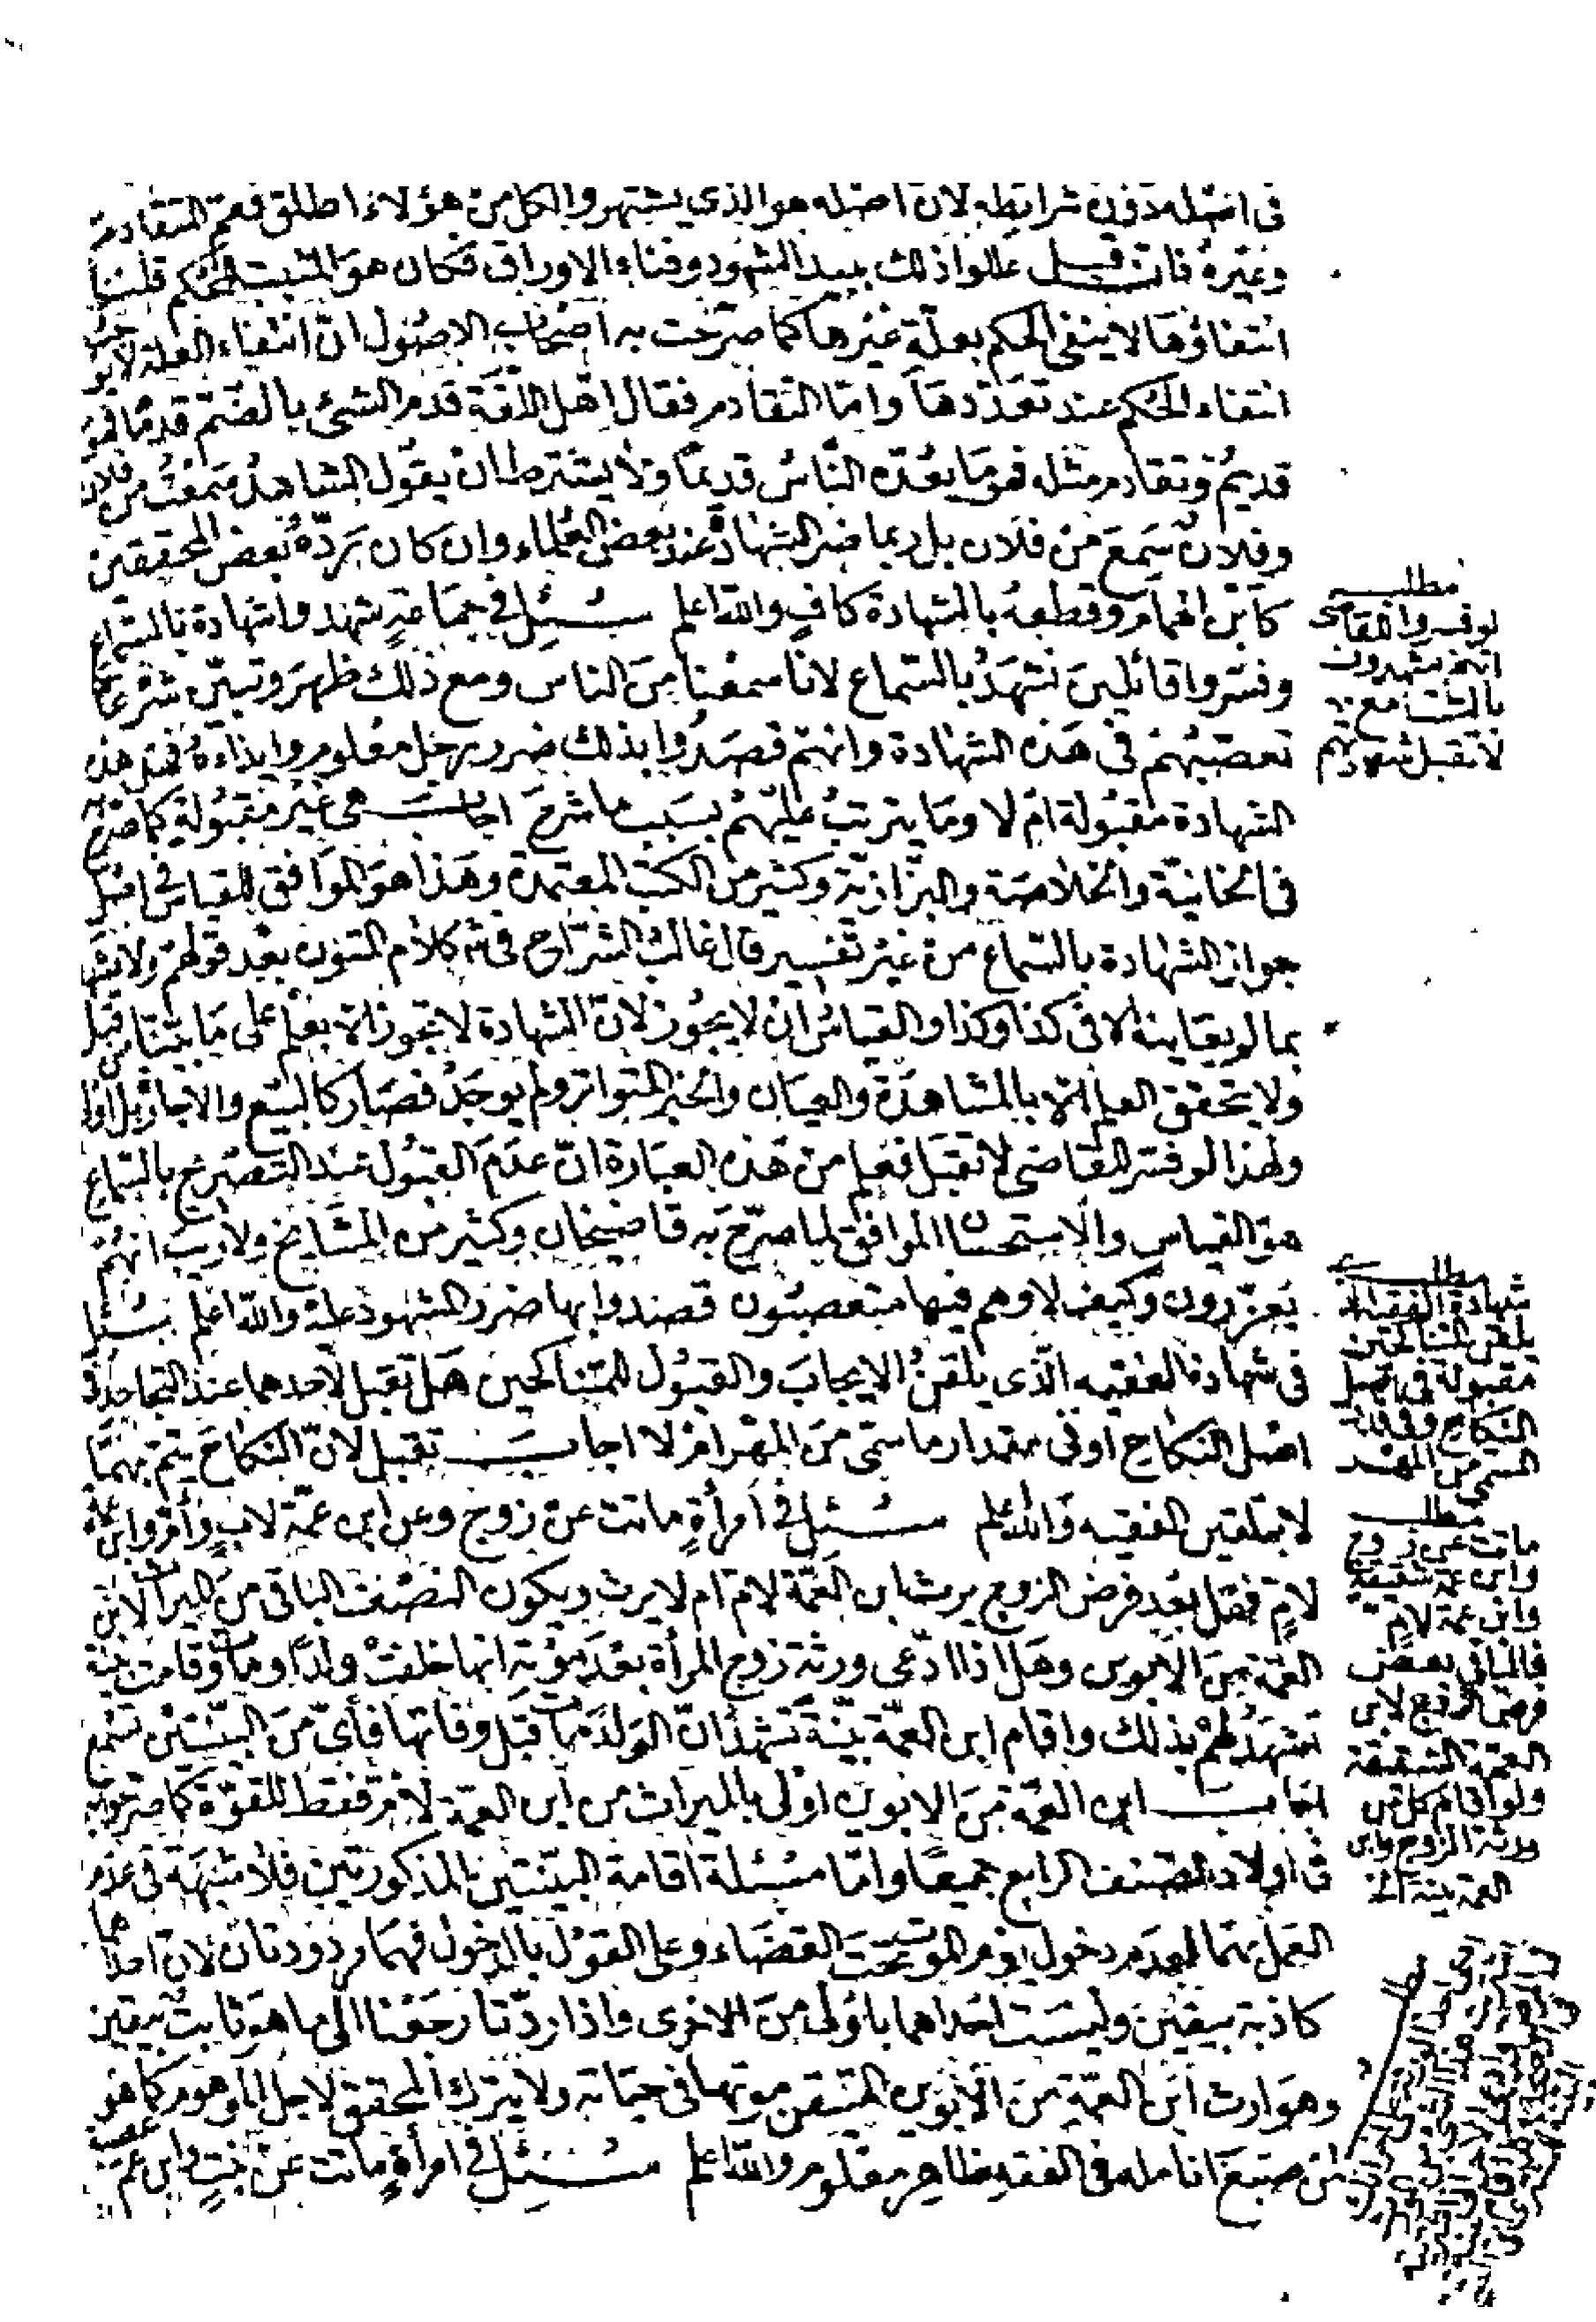 فى اصله دون شرائطه لان اصله هو الذى يشتهر والكل من هؤلاء اطلق فعم المتقادم
وغيره فان قيل عللوا ذلك ببيد الشهود وفناء الاوراق فكان هو المثبت للحكم قلنا
انتفاؤها لا ينفى الحكم بعلة غيرها كما صرحت به اصحاب الاصول ان انتفاء العلة لا يوجب
انتفاء الحكم عند تعددها واما التقادم فقال اهل اللغة قدم الشئ بالضم قدما فهو
قديم وتقادم مثله فهو ما يعده الناس قديما ولا يشترط ان يقول الشاهد سمعت من فلان
وفلان سمع من فلان بل ربما ضر الشهادة عند بعض العلماء وان كان يرده بعض المحققين
كابن الهمام وقطعه بالشهادة كاف والله اعلم سئل فى جماعة شهدوا شهادة بالسماع
وفسروا قائلين نشهد بالسماع لانا سمعنا من الناس ومع ذلك ظهر وتبين شرعا
تعصبهم فى هذه الشهادة وانهم قصدوا بذلك ضرر رجل معلوم وايذاءه فهل هذه
الشهادة مقبولة ام لا وما يترتب عليهم بسبب ما شرح اجاب هى غير مقبولة كما صرح به
فى الخانية والخلاصة والبزازية وكثير من الكتب المعتمدة وهذا هو الموافق للقياس فى اصل
جواز الشهادة بالسماع من غير تفسير قال غالب الشراح فى كلام المتون بعد قولهم ولا يشهد
بما لم يعاينه الا فى كذا وكذا والقياس ان لا يجوز لان الشهادة لا تجوز الا بعلم على ما بينا من قبل
ولا يتحقق العلم الا بالمشاهدة والعيان والخبر المتواتر ولم يوجد فصار كالبيع والاجارة بل اولى
ولهذا لو فسر للقاضى لا تقبل فعلم من هذه العبارة ان عدم القبول عند التصريح بالسماع
هو القياس والاستحسان الموافق لما صرح به قاضيخان وكثير من المشايخ ولا ريب انهم
يعزرون وكيف لا وهم فيها متعصبون قصدوا بها ضرر المشهود عليه والله اعلم سئل
فى شهادة الفقيه الذى يلقن الايجاب والقبول للمتناكحين هل تقبل لاحدهما عند التجاحد فى
اصل النكاح او فى مقدار ما سمى من المهر ام لا اجاب تقبل لان النكاح يتم بهما
لا بتلقين الفقيه والله اعلم سئل فى امرأة ماتت عن زوج وعن ابن عمة لاب وام وابن عمة
لام فهل بعد فرض الزوج يرث ابن العمة لام ام لا يرث ويكون النصف الباقى من الميراث لابن
العمة من الابوين وهل اذا ادعى ورثة زوج المرأة بعد موته انها خلفت ولدا ومات وقامت بينة
تشهد لهم بذلك واقام ابن العمة بينة تشهد ان الولد مات قبل وفاتها فأى من البينتين تسمع
اجاب ابن العمة من الابوين اولى بالميراث من ابن العمة لام فقط للقوة كما صرحوا به
فى اولاد الصنف الرابع جميعا واما مسئلة اقامة البينتين المذكورتين فلا شبهة فى عدم
العمل بهما لعدم دخول يوم الموت تحت القضاء وعلى القول بالدخول فهما مردودتان لان احداهما
كاذبة بيقين وليست احداهما باولى من الاخرى واذا ردتا رجعنا الى ما هو ثابت بيقين
وهو ارث ابن العمة من الابوين المتيقن موتها فى حياته ولا يترك المحقق لاجل الموهوم كما هو
لمن صبغ انامله فى الفقه ظاهر معلوم والله اعلم سئل فى امرأة ماتت عن بنت وابن عم عصبة
مطلب
لو فسروا للقاضى
انهم يشهدون
بالتسامع
لا تقبل شهادتهم
مطلب
شهادة الفقيه الذى
يلقن المتناكحين
مقبولة فى اصل
النكاح وفى قدر
المسمى من المهر
مطلب
ماتت عن زوج
وابن عمة شقيقة
وابن عمة لام
فالباقى بعد
فرض الزوج لابن
العمة الشقيقة
ولو اقام كل من
ورثة الزوج وابن
العمة بينة الخ